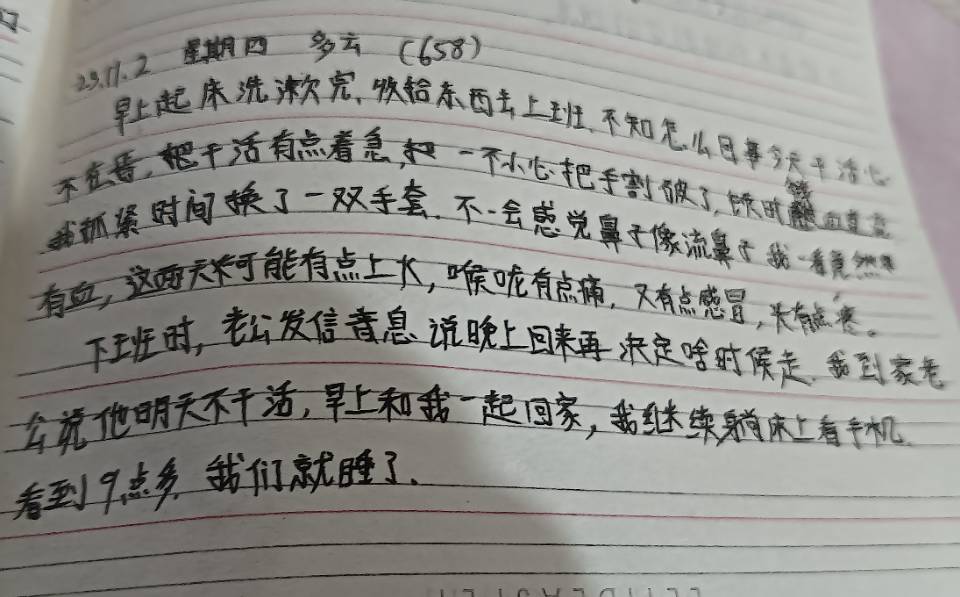 23.11.2 星期四 多云 (658)
早上起床洗漱完,收给东西去上班,不知怎么回事今天干活心
不在焉,把干活有点着急,一不小心把手割破了,顿时血直流
我抓紧时间换了一双手套.不一会感觉鼻子像流鼻子我一看竟然
有血,这两天可能有点上火,喉咙有点痛,又有点感冒,头有点疼。
下班时,老公发信息说晚上回来再决定啥时候走.我到家老
公说他明天不干活,早上和我一起回家,我继续躺床上看手机.
看到9点多,我们就睡了.